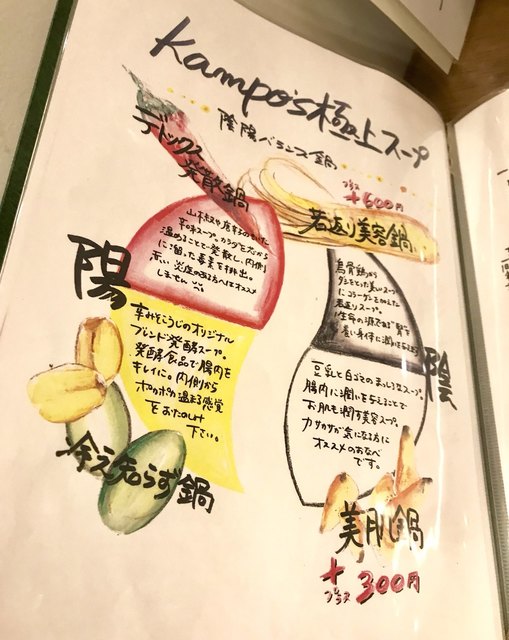 Kampo's極上スープ
陰陽バランス鍋
デトックス
発散鍋
プラス
+600円
若返り美容鍋
陽
山椒や唐辛子のきいた
辛味スープ。カラダを芯から
温めることで発散し、内側
に溜った毒素を排出。
赤い炎症のある方にはオススメ
しません
辛みそこうじのオリジナル
ブレンド発酵スープ。
発酵食品で腸内を
キレイに。内側から
ポカポカ温まる感覚
をおたのしみ
下さい。
冷え知らず鍋
烏骨鶏から
ダシをとった美いスープ
にコラーゲンを加えた
若返りスープ。
生命の源である"腎"を
養い身体に潤いを与えよう
陰
豆乳と白ゴマのまろやかスープ。
腸内に潤いを与えることで
お肌も潤す美容スープ。
カサカサが気になる方に
オススメのおなべ
です。
美肌鍋
+300円
プラス